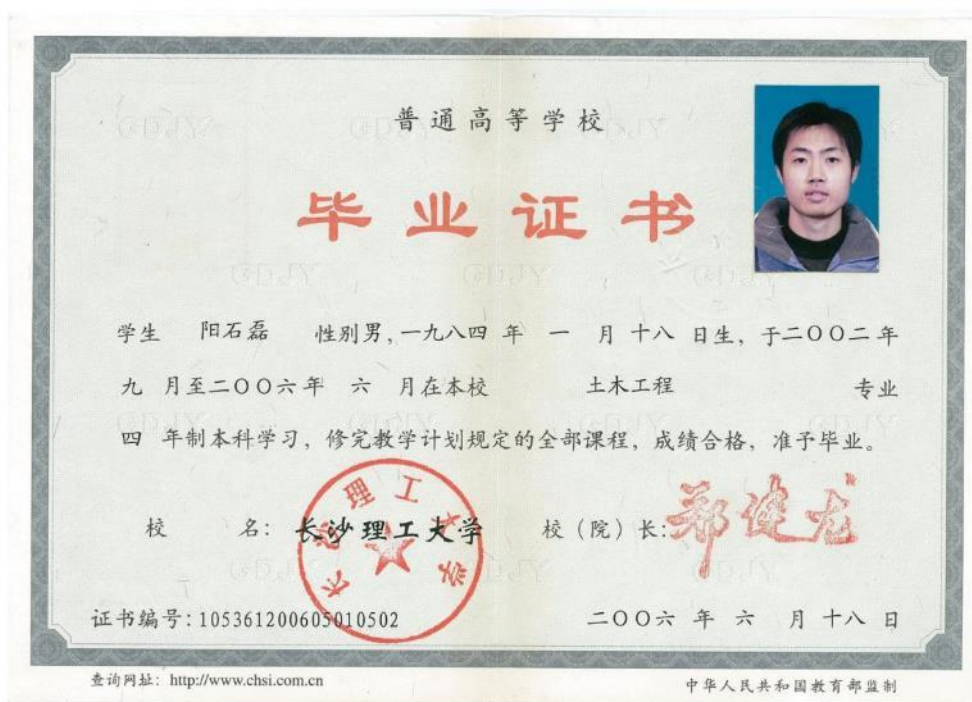 普通高等学校
毕业证书
学生 阳石磊 性别男，一九八四 年 一 月 十八 日生，于二〇〇二年
九 月至二〇〇六年 六 月在本校 土木工程 专业
四 年制本科学习，修完教学计划规定的全部课程，成绩合格，准予毕业。
校 名：长沙理工大学 校（院）长：郑健龙
长沙理工大学
证书编号：105361200605010502 二〇〇六 年 六 月 十八 日
查询网址：http://www.chsi.com.cn 中华人民共和国教育部监制